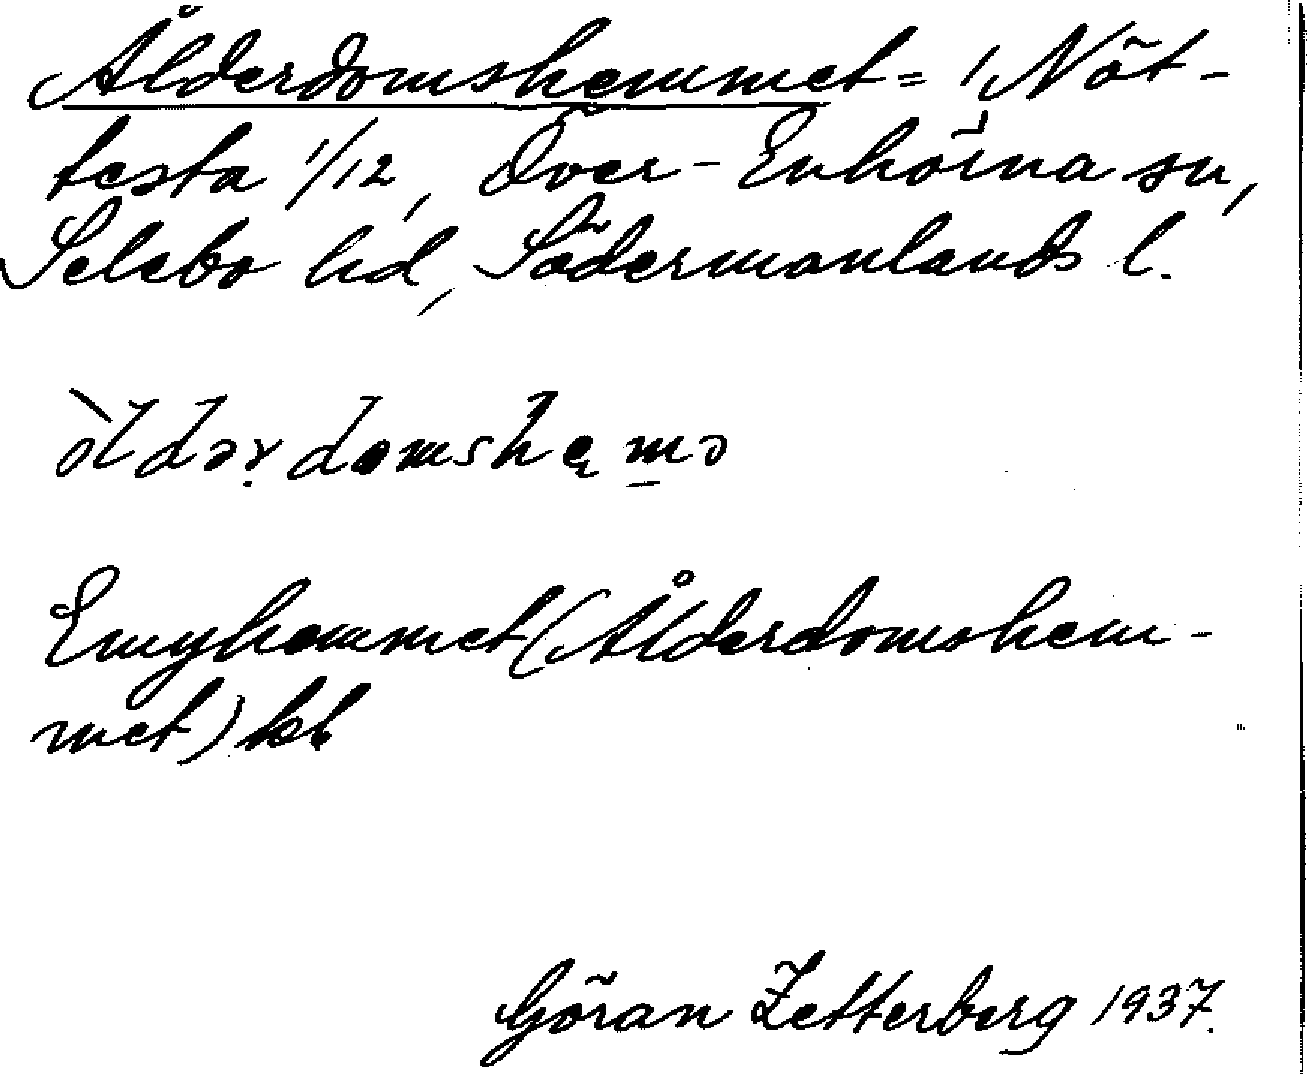 Ålderdomshemmet = 1, Nöt-
testa 1/12, Över-Enhörna sn,
Selebo hd, Södermanlands l.
òldərdomshęmə
Emyhemmet (Ålderdomshem-
met) kb
Göran Zetterberg 1937.